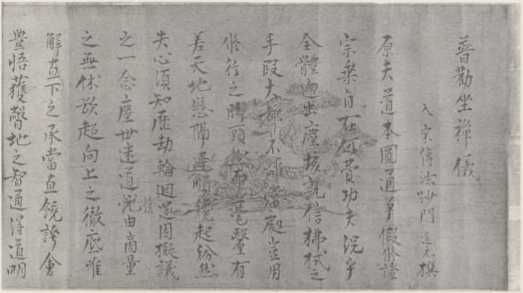 普勸坐禪儀
入宋傳法沙門道元撰
原夫道本圓通爭假修證
宗乘自在何費功夫況乎
全體逈出塵埃孰信拂拭之
手段大都不離當處豈用
修行之脚頭然而毫釐有
差天地懸隔違順纔起紛然
失心須知歷劫輪迴還因擬議
之一念塵世迷道由商量
之無休欲超向上之徹底唯
解直下之承當直饒誇會
豐悟獲瞥地之智通得道明